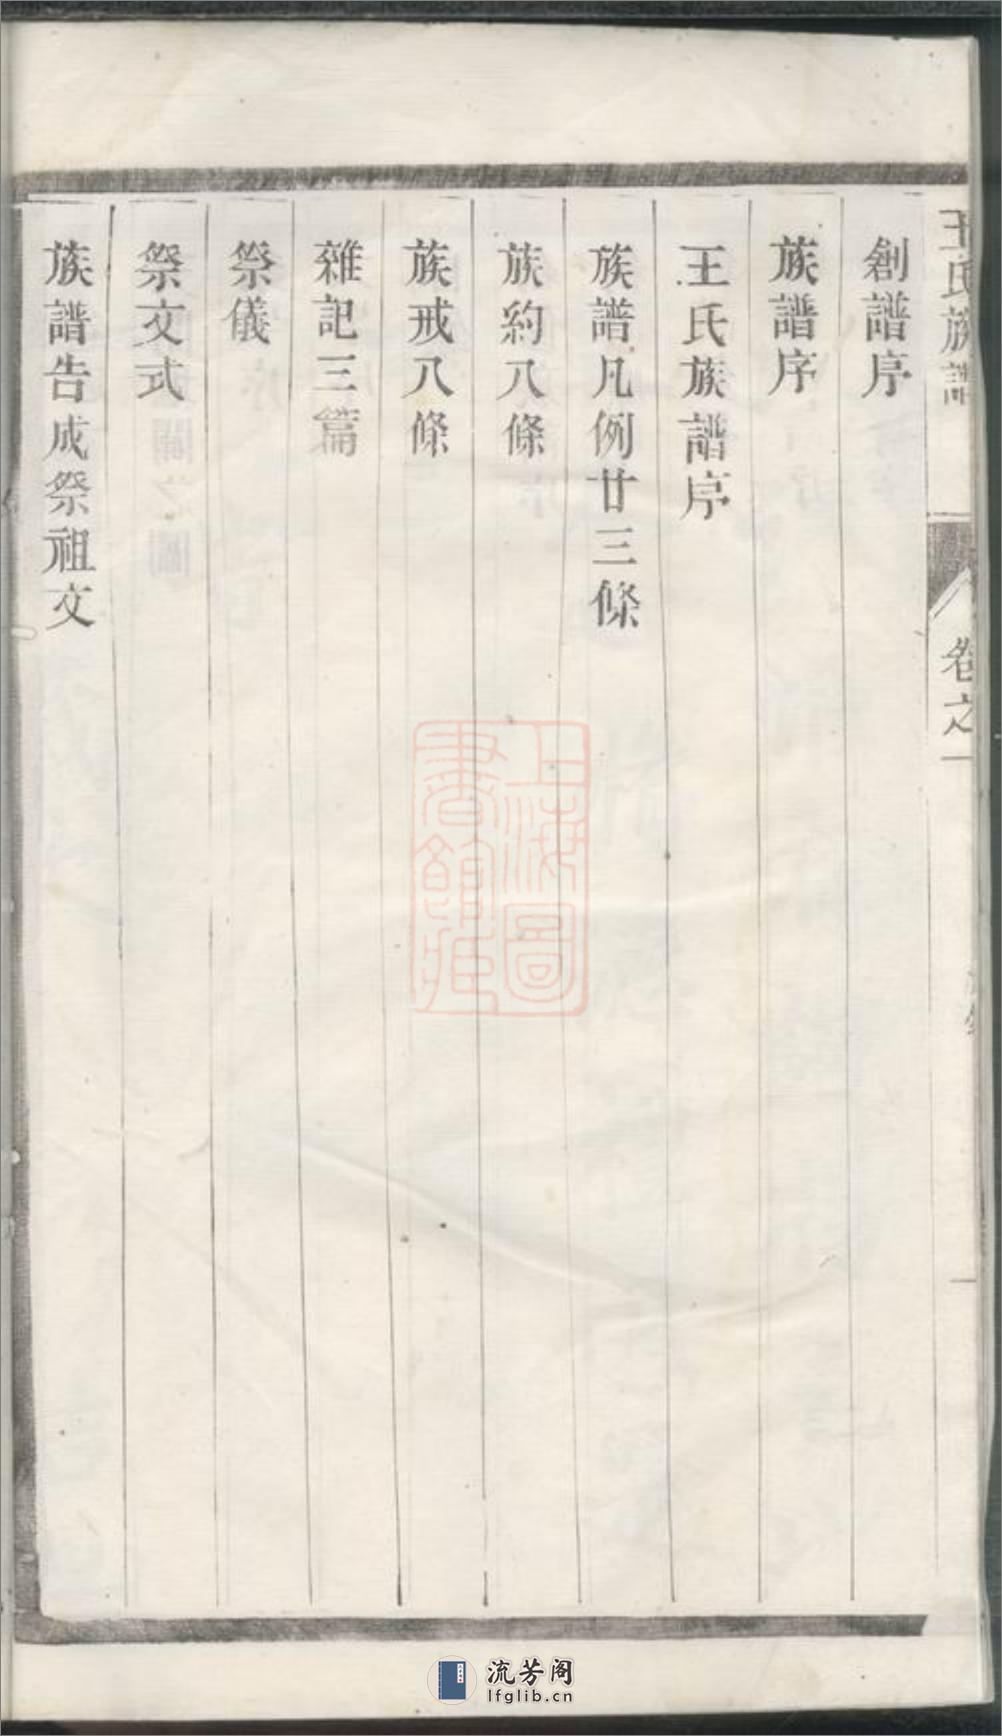 王氏族譜
卷之一
創譜序
族譜序
王氏族譜序
族譜凡例廿三條
族約八條
族戒八條
雜記三篇
祭儀
祭文式
族譜告成祭祖文
上海圖
書館藏
流芳阁
lfglib.cn